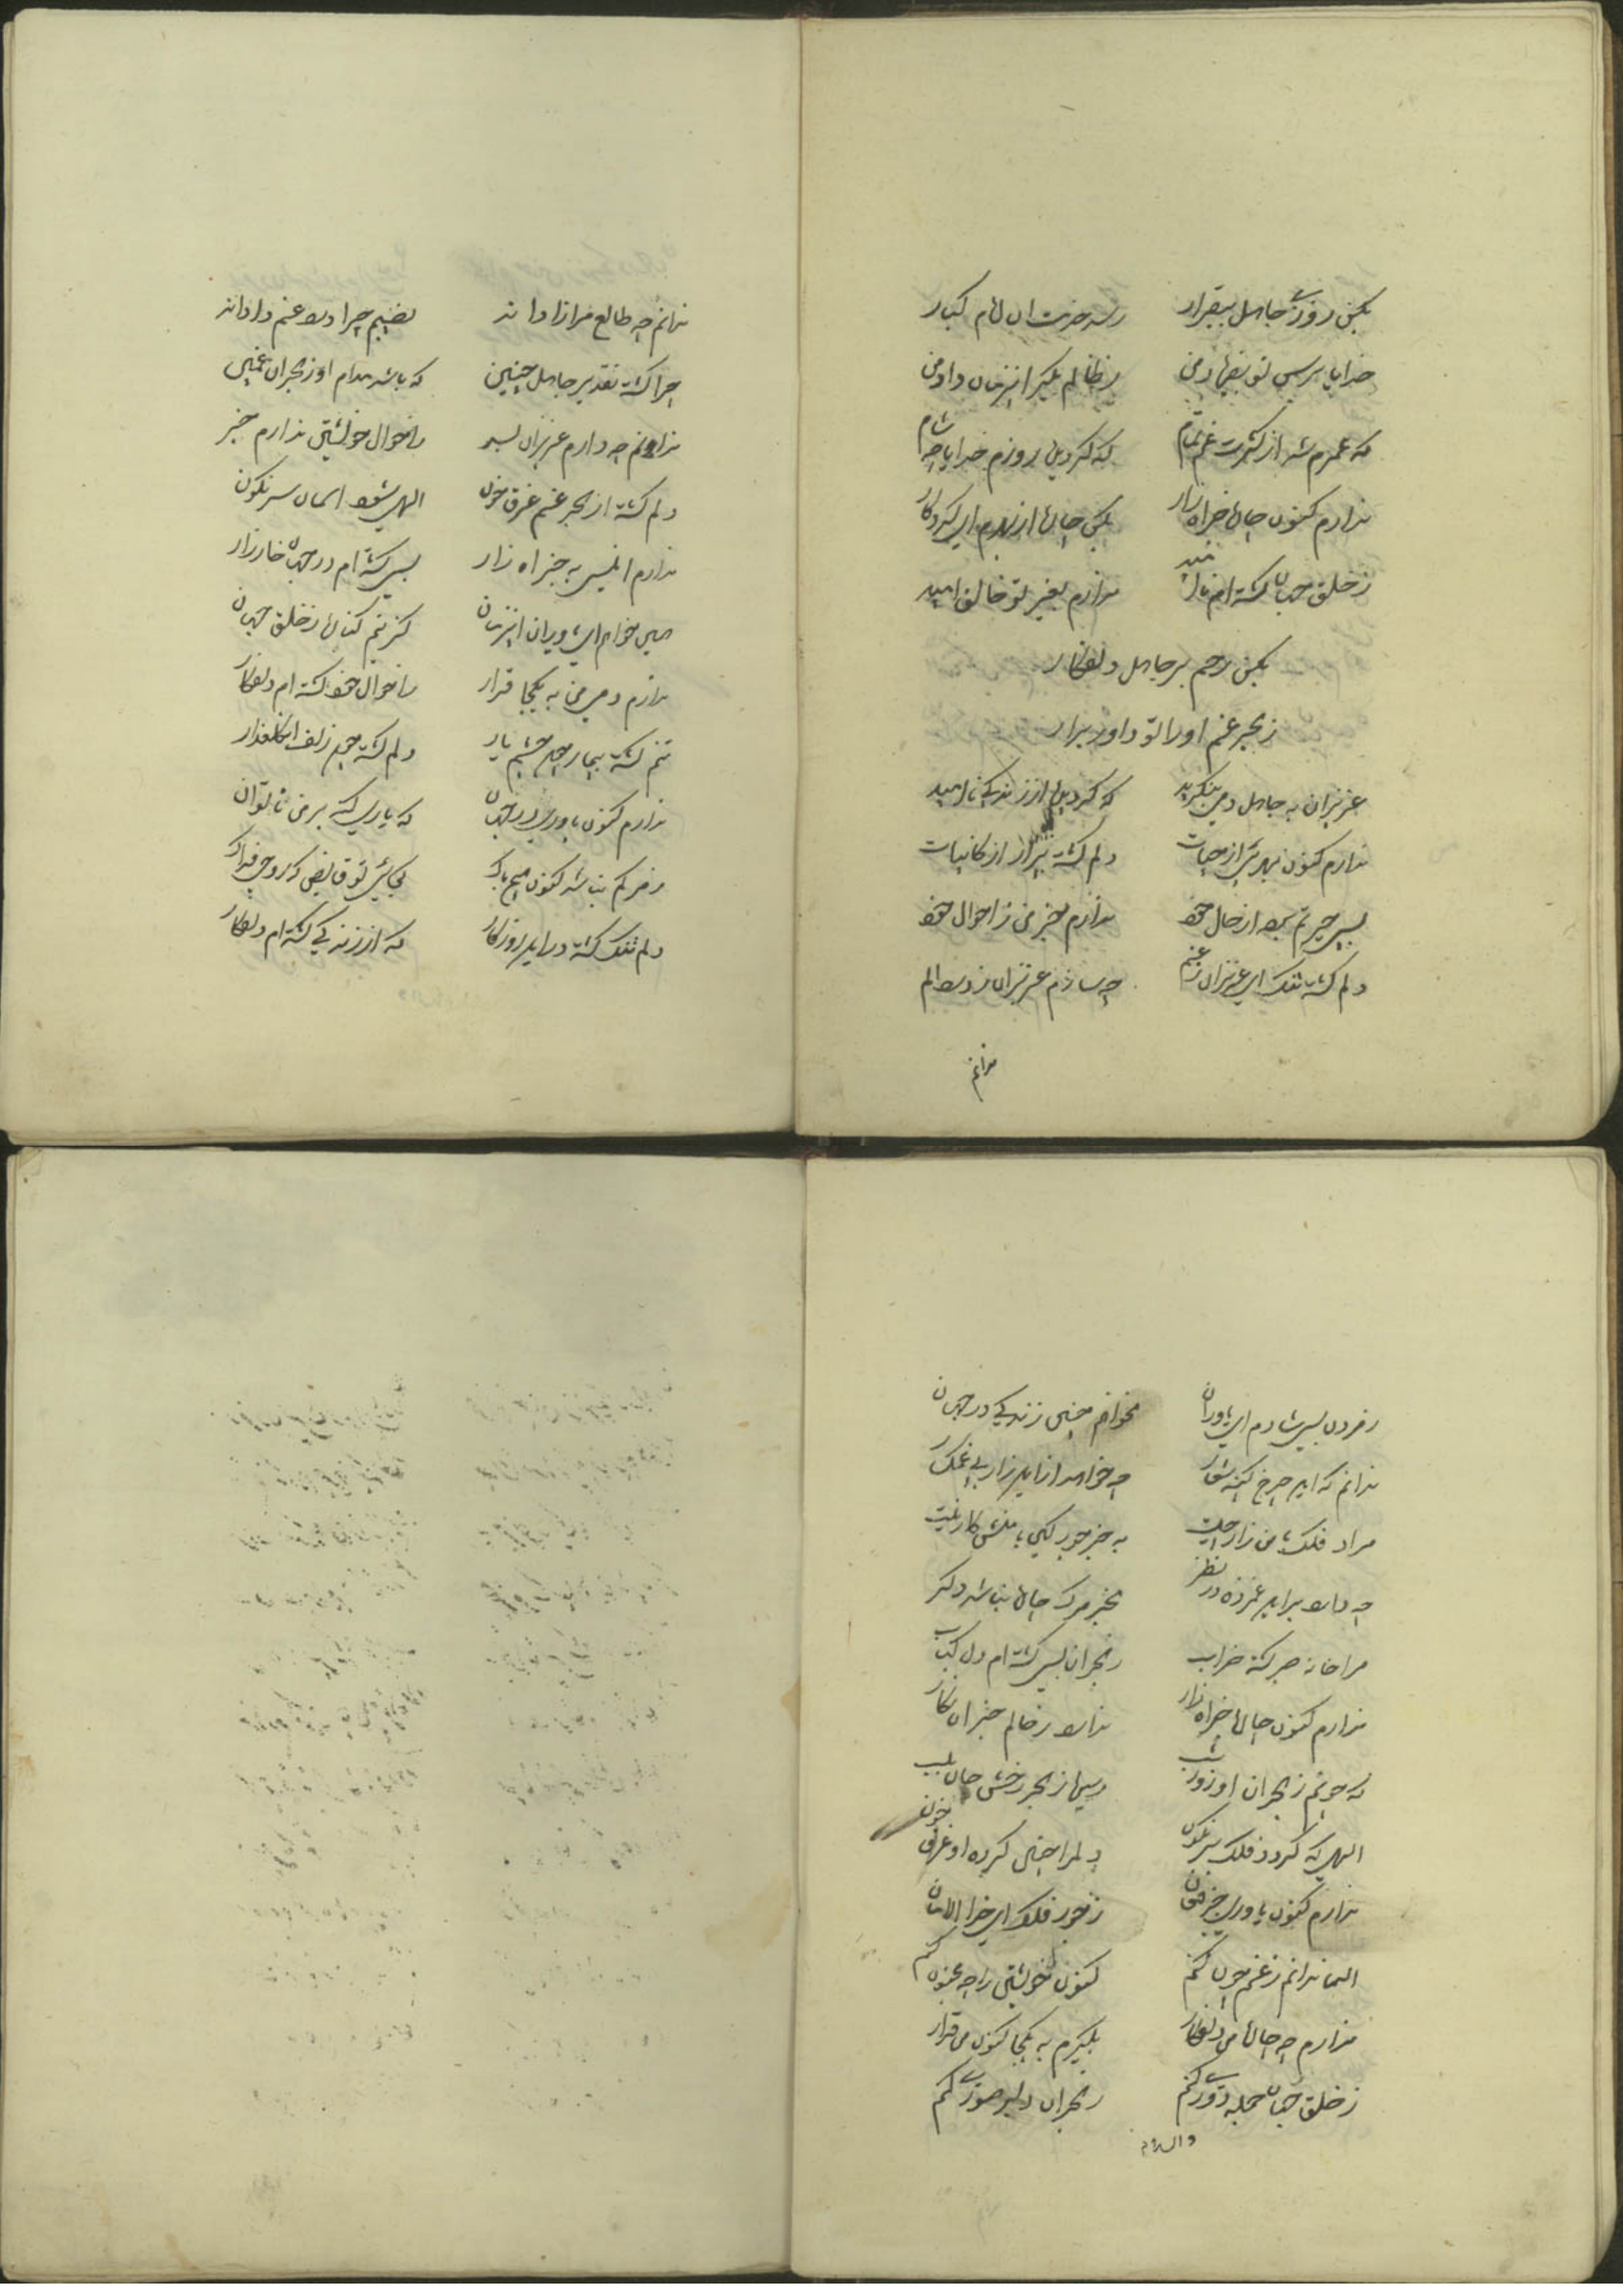 بکن روزی جاهل بیقرار رسد خدمت آن
خدایا بپرس تو بفریاد من ز ظالم بگیر اینزمان داد من
که عمرم شد از کثرت غم تمام که گردیده روزم خدایا چه شام
ندارم کنون جانا جز آه زار بکن چاره از بهرم ای کردکار
ز خلق جهان گشته‌ام نا امید ندارم بغیر تو خالق امید
بکن رحم بر جاهل دلفکار
ز بحر غم او را تو داور برار
عزیزان به جاهل دمی بنکرید که گردیده از زندکی نا امید
ندارم کنون بهره از حیات دلم گشته بیزار از کاینات
بسی حیرتم بود از حال خود ندارم خبر من ز احوال خود
دلم گشته تنک ای عزیزان ز غم چه سازم عزیزان درد الم
ندانم
ندانم چه طالع مرا زاداند نصیبم چرا درد غم داداند
چرا گشته تقدیر جاهل چنین که باشد مدام او ز هجران غمین
ندانم چه دارم عزیزان بسر ز احوال خویشتن ندارم خبر
دلم گشته از بحر غم غرق خون الهی شود آسمان سرنکون
ندارم انیسی به جز آه زار بسی گشته‌ام در جهان خار زار
همی خواهم ای یاوران اینزمان که من کناره ز خلق جهان
ندارم دمی من به یکجا قرار ز احوال خود گشته‌ام دلفکار
تنم گشته بیمار چون چشم یار دلم گشته چون زلف آن کلعذار
ندارم کنون یاوری در جهان که یاری کند بر من ناتوان
ز مرکم نباشد کنون هیچ باک کجائی تو قابض که روحی فداک
دلم تنک گشته در این روزکار که از زندکی گشته‌ام دلفکار
ز مردن بسی شادم ای یاوران نخواهم چنین زندکی در جهان
ندانم که این چرخ کینه شعار چه خواهد از این زار بی غمکسار
مراد فلک با من زار چیست به جز جور کین با منش کار نیست
چه دارد براین غمزده در نظر بجز مرک چاره نباشد دکر
مرا خانه صبر گشته خراب ز هجران بسی گشته‌ام دل کباب
ندارم کنون چاره جز آه زار ندارد ز حالم خبر آن نکار
که چونم ز هجران او روز شب رسیده ز هجر رخش جان بلب
الهی که گردد فلک سرنکون دلم را چنین کرده او غرق خون
ندارم کنون یاوری جز فغان ز جور فلک ای خدا الامان
الها ندانم ز غم چون کنم کنون خویشتن را چه مجنون کنم
ندارم چه چاره من دلفکار بگیرم به یکجا کنون من قرار
ز خلق جهان جمله دوری کنم ز هجران دلبر صبوری کنم
والسلام